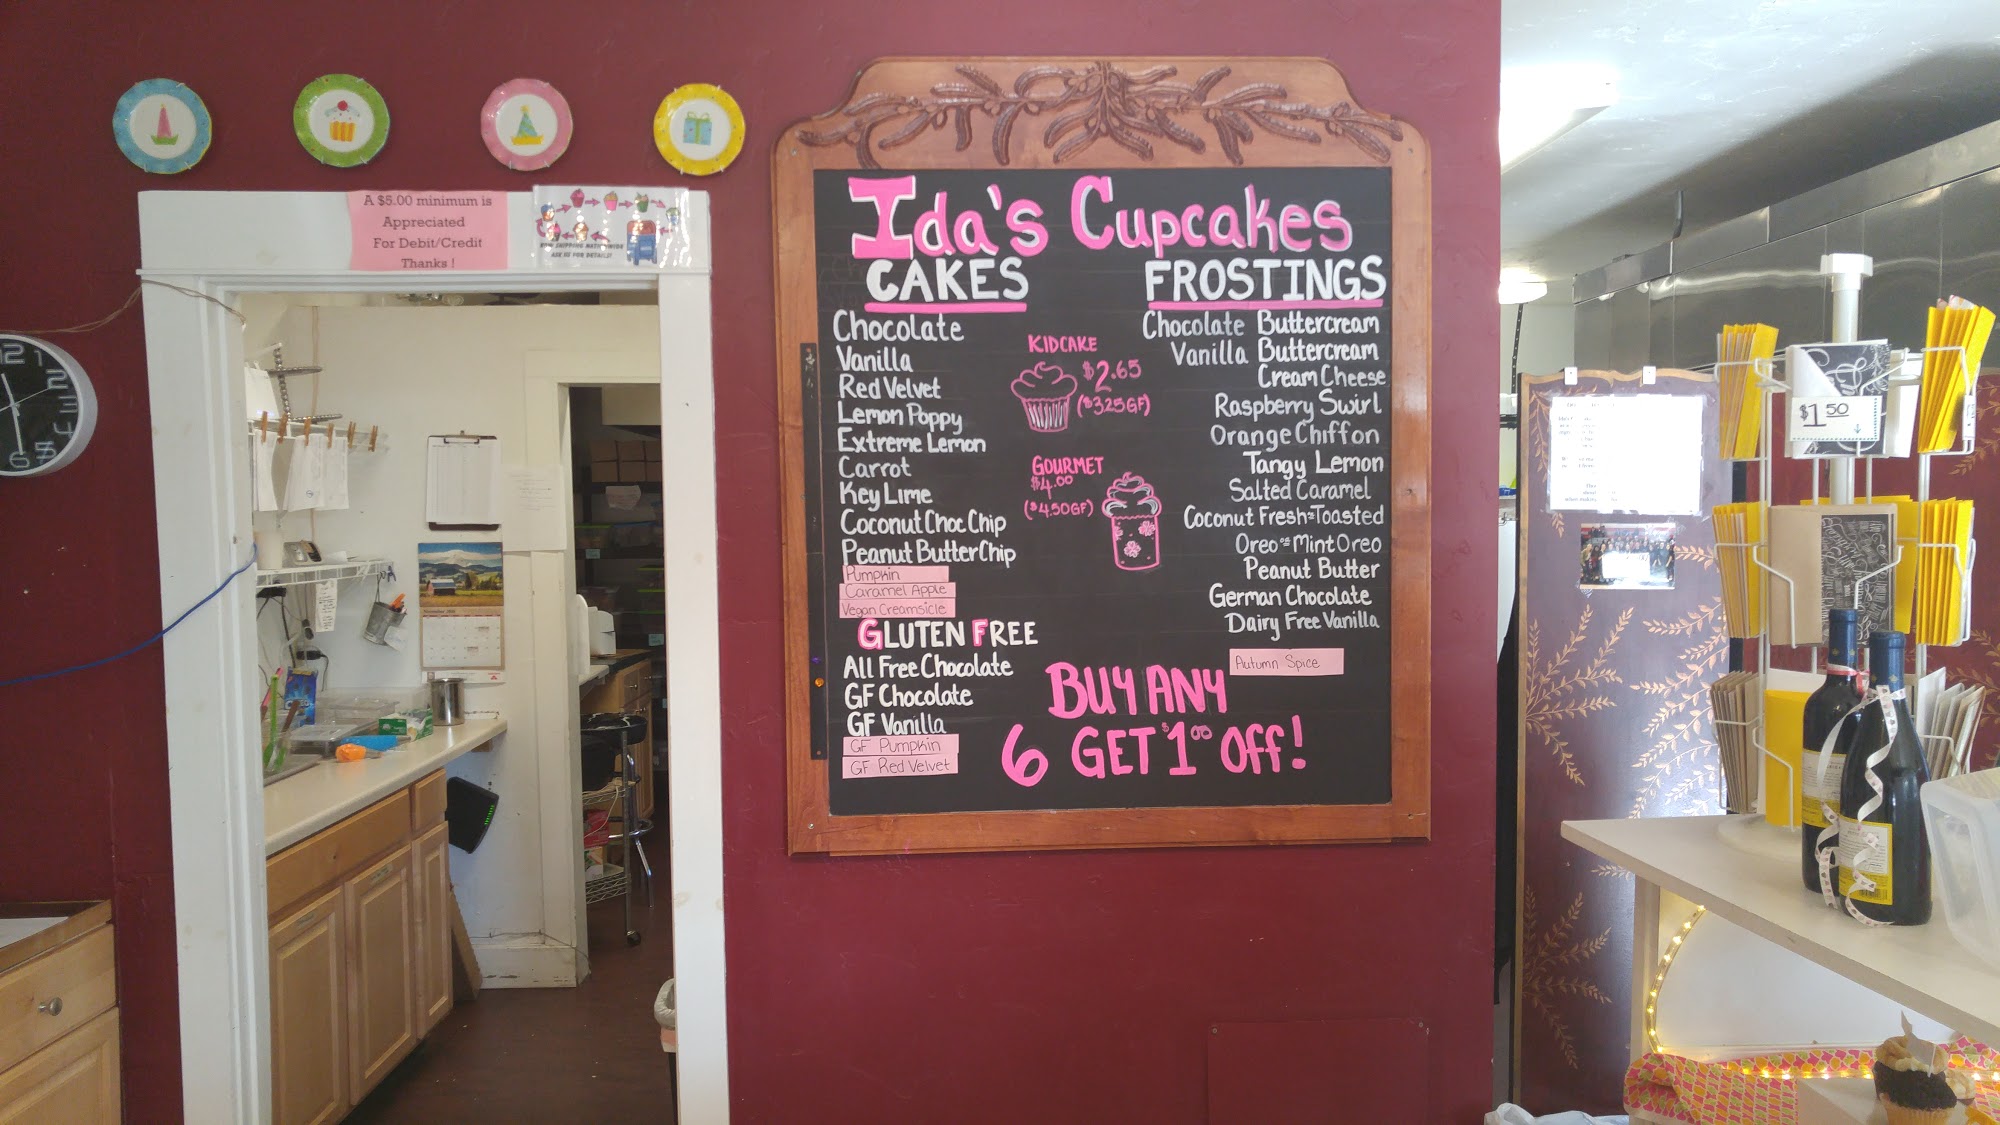 A $5.00 minimum is
Appreciated
For Debit/Credit
Thanks !
NOW SHIPPING NATIONWIDE
ASK US FOR DETAILS!
12
1
2
3
4
5
6
Ida's Cupcakes
CAKES
Chocolate
Vanilla
Red Velvet
Lemon Poppy
Extreme Lemon
Carrot
Key Lime
Coconut Choc Chip
Peanut Butter Chip
Pumpkin
Caramel Apple
Vegan Creamsicle
GLUTEN FREE
All Free Chocolate
GF Chocolate
GF Vanilla
GF Pumpkin
GF Red Velvet
KIDCAKE
$2.65
($3.25GF)
GOURMET
$4.00
($4.50GF)
FROSTINGS
Chocolate Buttercream
Vanilla Buttercream
Cream Cheese
Raspberry Swirl
Orange Chiffon
Tangy Lemon
Salted Caramel
Coconut Fresh or Toasted
Oreo or Mint Oreo
Peanut Butter
German Chocolate
Dairy Free Vanilla
Autumn Spice
BUY ANY
6 GET $1.00 Off!
$1 50